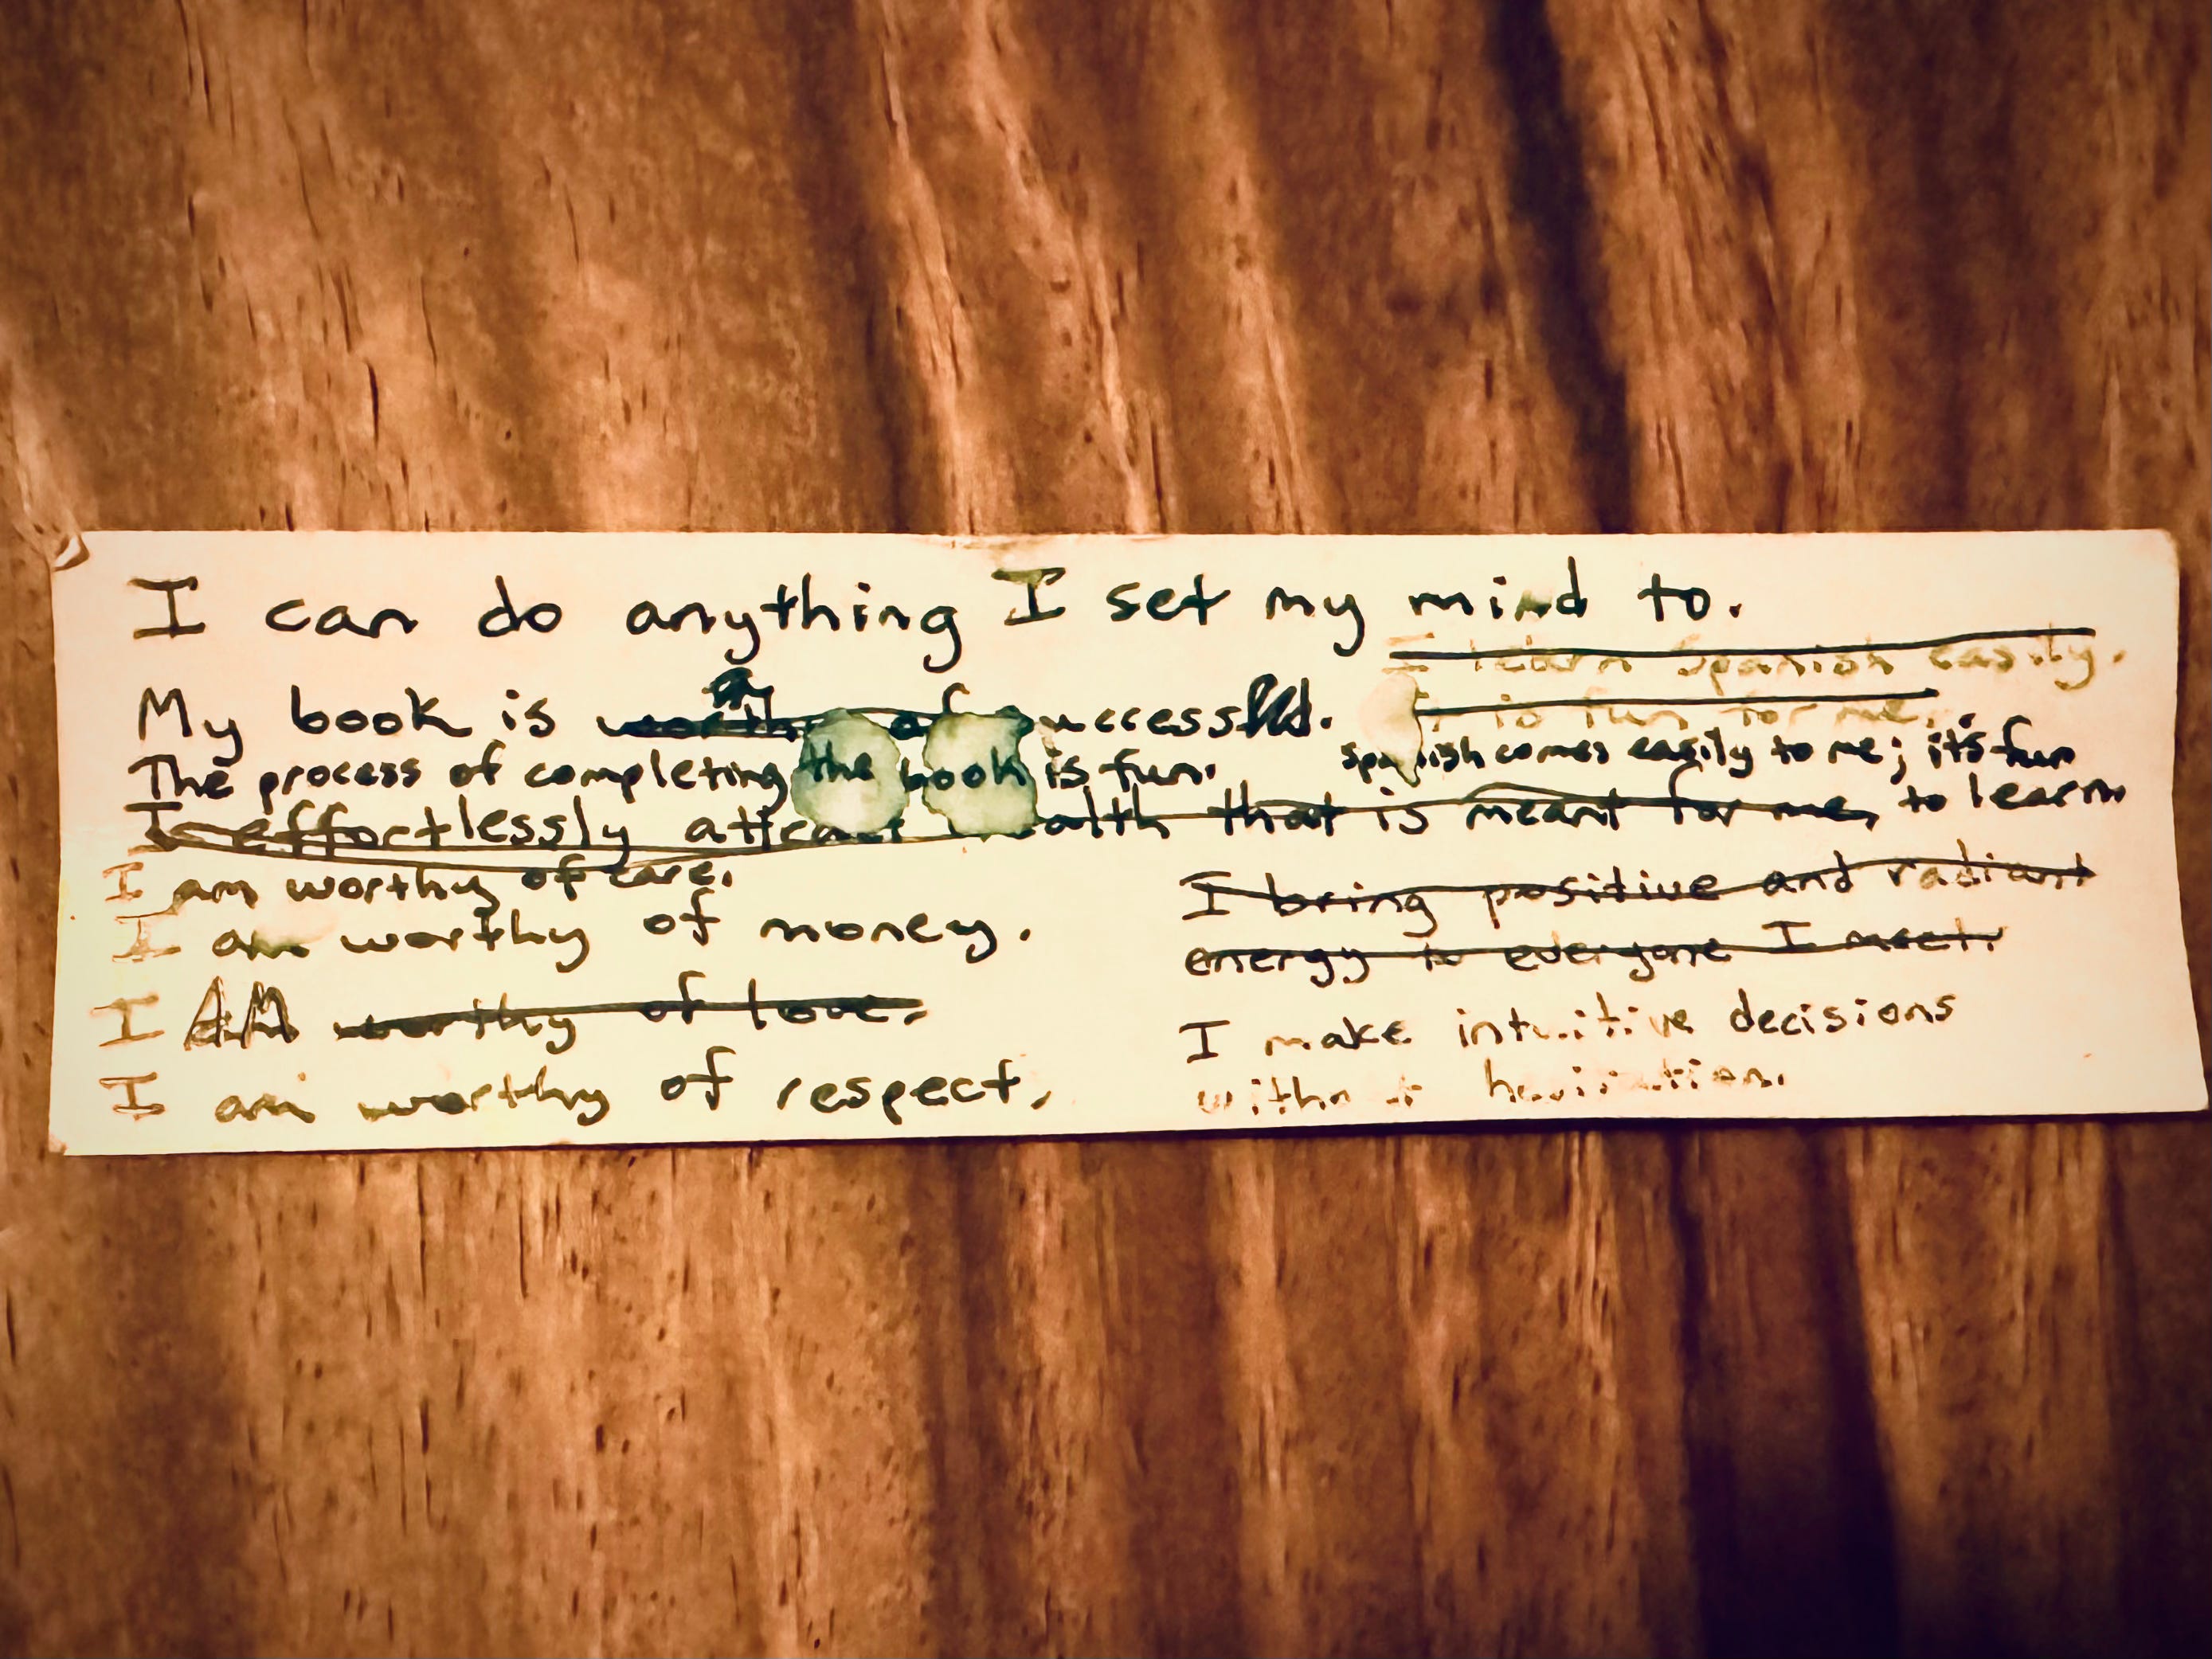 I can do anything I set my mind to.
I learn Spanish easily.
My book is worthy of successful.
It is fun for me.
The process of completing the book is fun.
Spanish comes easily to me; it's fun
to learn.
I effortlessly attract wealth that is meant for me,
I am worthy of care.
I am worthy of money.
I AM worthy of love.
I am worthy of respect.
I bring positive and radiant
energy to everyone I meet.
I make intuitive decisions
without hesitation.